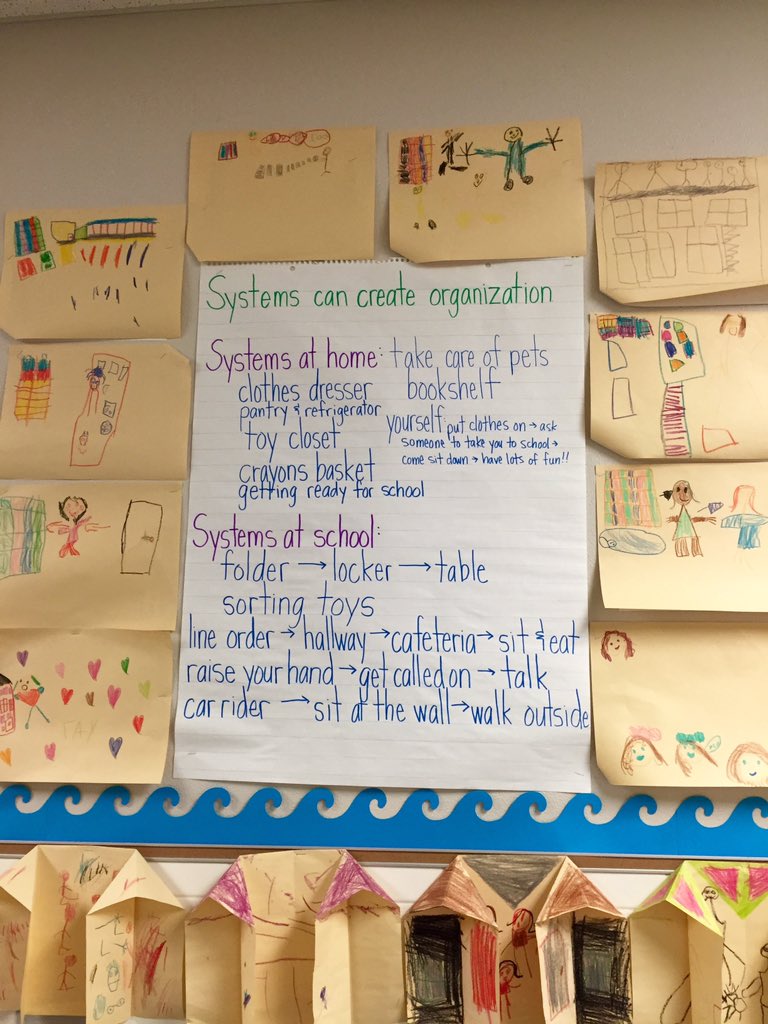 Systems can create organization
Systems at home: take care of pets
clothes dresser bookshelf
pantry & refrigerator
toy closet
yourself put clothes on → ask
someone to take you to school →
come sit down → have lots of fun!!
crayons basket
getting ready for school
Systems at school:
folder → locker → table
sorting toys
line order → hallway → cafeteria → sit & eat
raise your hand → get called on → talk
car rider → sit at the wall → walk outside